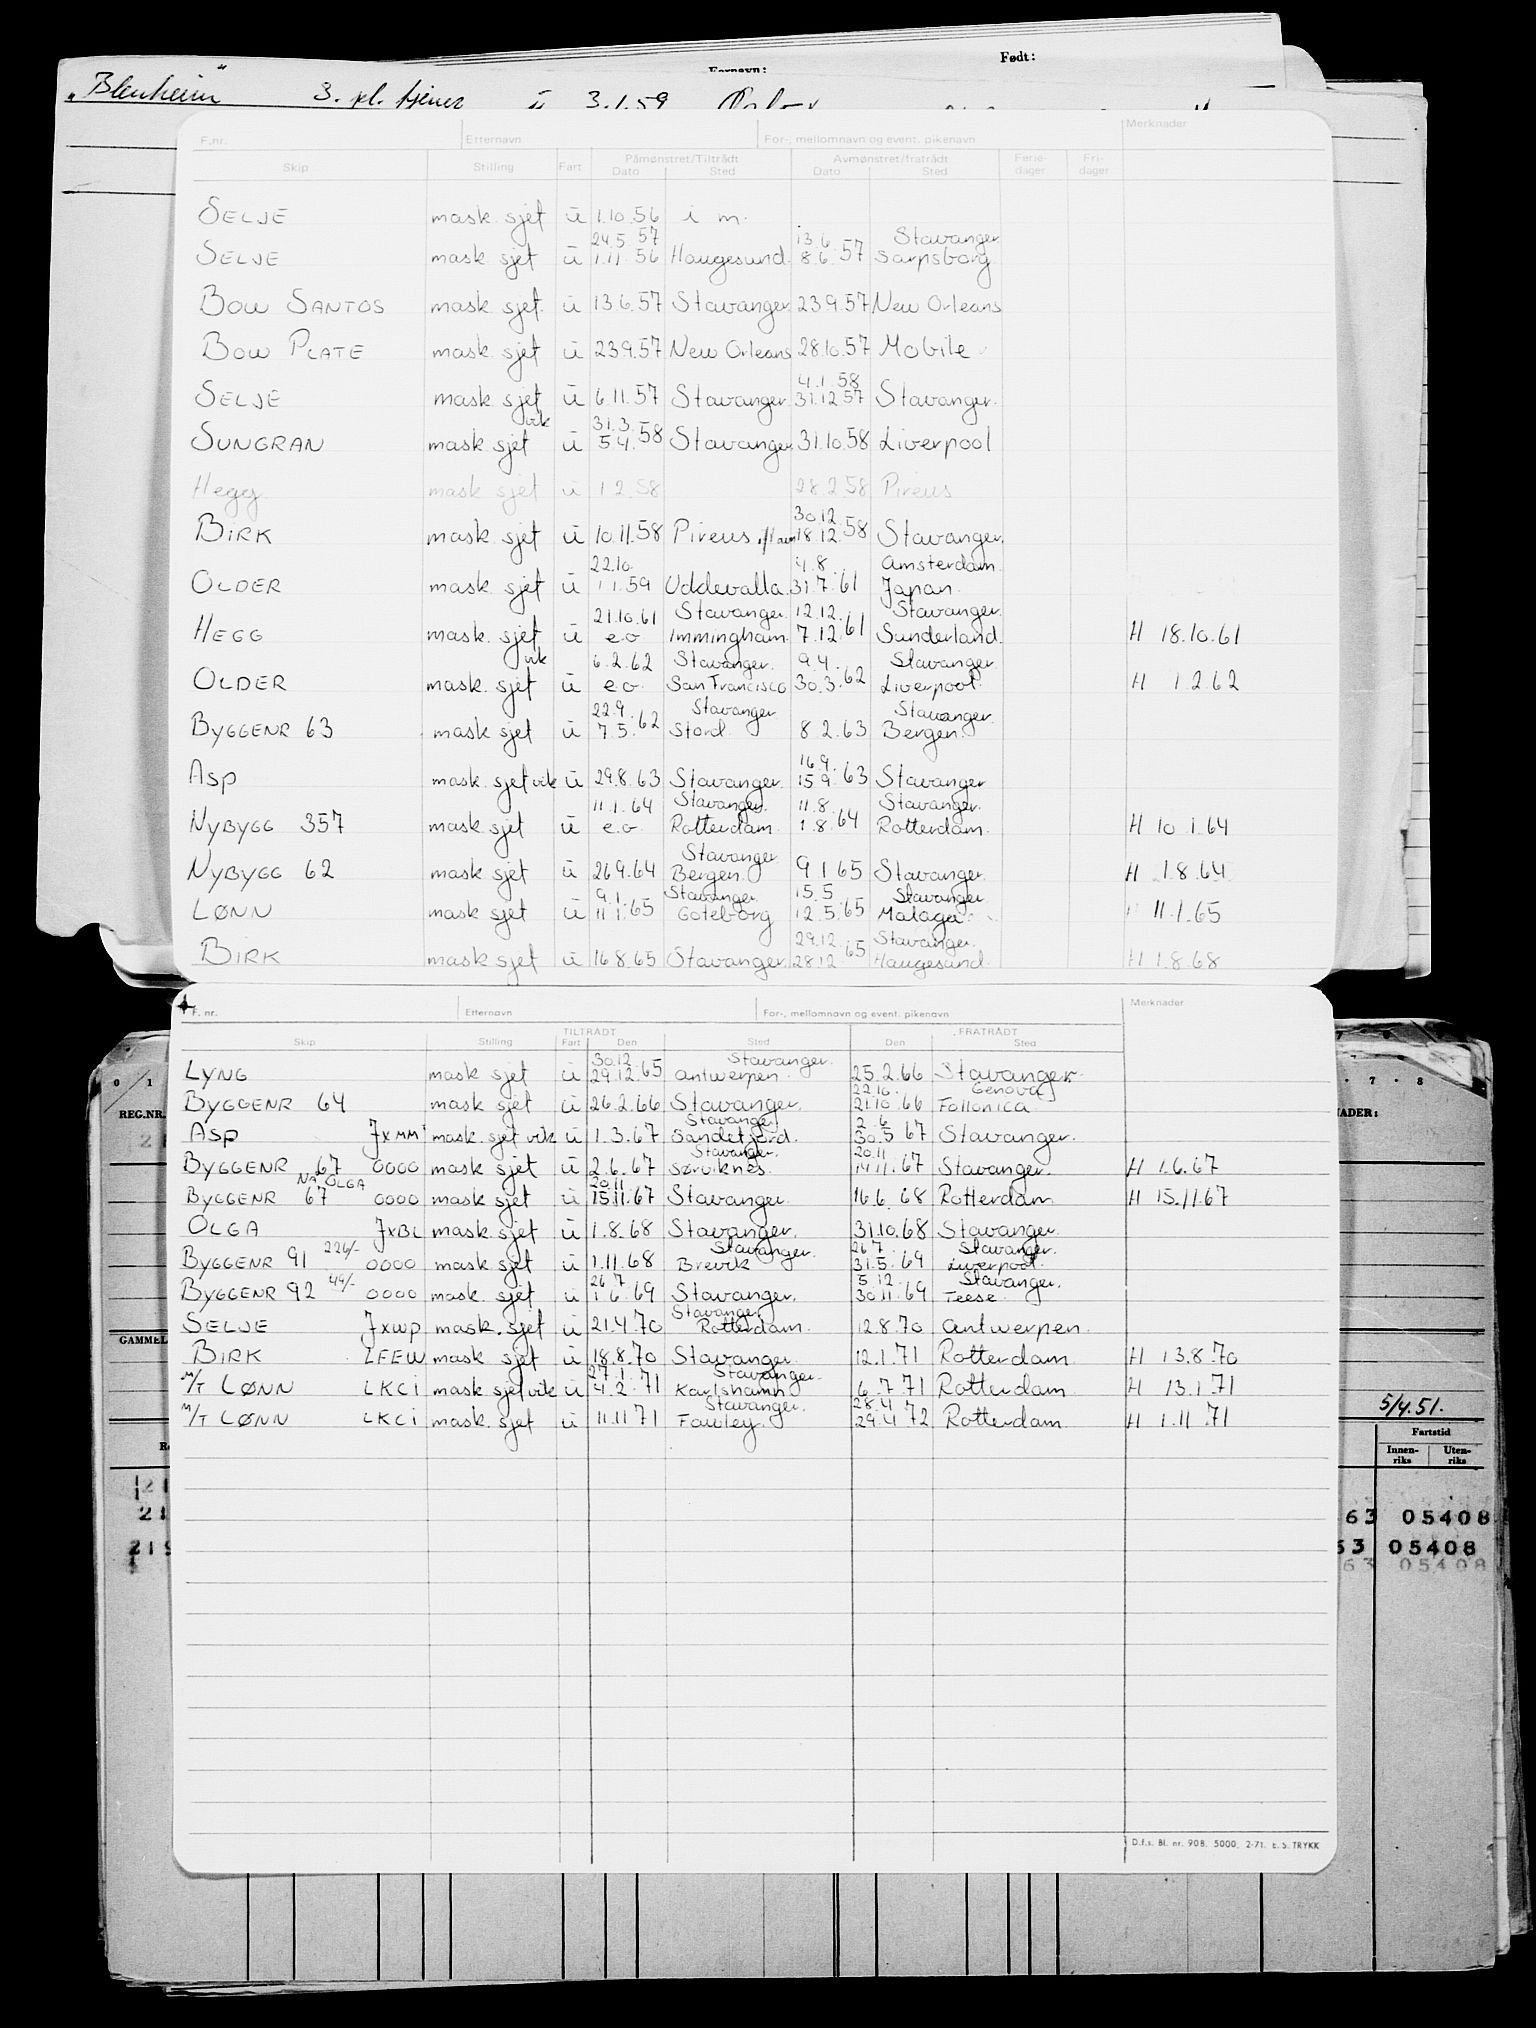 Fornavn: Født:
"Blenheim" 3. kl. tjener u 3.1.59
F.nr. Etternavn For-, mellomnavn og event. pikenavn Merknader
Skip Stilling Fart Påmønstret/Tiltrådt Avmønstret/fratrådt Ferie-dager Fri-dager
Dato Sted Dato Sted
SELJE mask. sjef u 1.10.56 i m.
24.5.57 13.6. Stavanger
SELJE mask sjef u 1.11.56 Haugesund 8.6.57 Sarpsborg
BOW SANTOS mask sjef. u 13.6.57 Stavanger 23.9.57 New Orleans
BOW PLATE mask. sjef u 23.9.57 New Orleans 28.10.57 Mobile
4.1.58
SELJE mask sjef u 6.11.57 Stavanger 31.12.57 Stavanger.
vik 31.3.
SUNGRAN mask sjef u 5.4.58 Stavanger 31.10.58 Liverpool
Hegg mask sjef u 1.2.58 28.2.58 Pireus
30.12.
BIRK mask sjef u 10.11.58 Pireus 18.12.58 Stavanger
22.10. 4.8. Amsterdam.
OLDER mask sjef u 1.1.59 Uddevalla 31.7.61 Japan.
21.10.61 Stavanger 12.12. Stavanger
HEGG mask. sjef u e.o. Immingham. 7.12.61 Sunderland. H 18.10.61
vik 6.2.62 Stavanger. 9.4. Stavanger
OLDER mask. sjef u e.o. San Francisco 30.3.62 Liverpool. H 1.2.62
22.9. Stavanger Stavanger.
BYGGENR 63 mask sjef u 7.5.62 Stord. 8.2.63 Bergen.
16.9.
ASP mask. sjef vik u 29.8.63 Stavanger 15.9.63 Stavanger
11.1.64 Stavanger. 11.8. Stavanger.
NYBYGG 357 mask sjef u e.o. Rotterdam. 1.8.64 Rotterdam. H 10.1.64
Stavanger
NYBYGG 62 mask sjef u 26.9.64 Bergen. 9.1.65 Stavanger. H 1.8.64
9.1. Stavanger 15.5 Stavanger
LØNN mask sjef u 11.1.65 Goteborg 12.5.65 Malaga H 11.1.65
29.12. Stavanger.
BIRK mask sjef u 16.8.65 Stavanger 28.12.65 Haugesund. H 1.8.68
F. nr. Etternavn For-, mellomnavn og event. pikenavn Merknader
TILTRÅDT FRATRÅDT
Skip Stilling Fart Den Sted Den Sted
30.12. Stavanger.
LYNG mask sjef u 29.12.65 Antwerpen. 25.2.66 Stavanger.
22.10. Genova
BYGGENR 64 mask sjef u 26.2.66 Stavanger. 21.10.66 Follonica
Stavanger 2.6
ASP JXMM mask. sjef vik u 1.3.67 Sandefjord. 30.5.67 Stavanger.
Stavanger. 20.11
BYGGENR 67 0000 mask sjef u 2.6.67 Sørviknes. 14.11.67 Stavanger. H 1.6.67
NÅ OLGA 20.11
BYGGENR 67 0000 mask sjef u 15.11.67 Stavanger. 16.6.68 Rotterdam H 15.11.67
OLGA JXBL mask. sjef u 1.8.68 Stavanger. 31.10.68 Stavanger.
226/- Stavanger. 26.7. Stavanger.
BYGGENR 91 0000 mask. sjef u 1.11.68 Brevik 31.5.69 Liverpool.
49/- 26.7 5.12. Stavanger.
BYGGENR 92 0000 mask. sjef u 1.6.69 Stavanger. 30.11.69 Teese.
Stavanger
SELJE JXWP mask. sjef u 21.4.70 Rotterdam. 12.8.70 Antwerpen.
BIRK LFEW mask sjef u 18.8.70 Stavanger 12.1.71 Rotterdam H 13.8.70
27.1. Stavanger.
M/T LØNN LKCI mask sjef vik u 4.2.71 Karlshamn 6.7.71 Rotterdam H 13.1.71
Stavanger. 28.4
M/T LØNN LKCI mask. sjef u 11.11.71 Fawley. 29.4.72 Rotterdam H 1.11.71
D.f.s. Bl. nr. 908. 5000. 2-71. E. S. TRYKK
0 1
REG.NR.
GAMMEL
7 8
5/4.51.
Fartstid
Innen-riks Uten-riks
63 05408
63 05408
63 05408